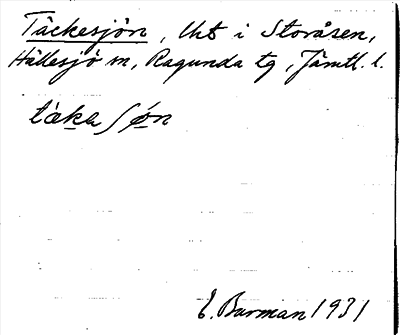 Täckesjön, Uht i Storåsen,
Hällesjö sn, Ragunda tg, Jämtl. l.
täka ʃön
E. Burman 1931